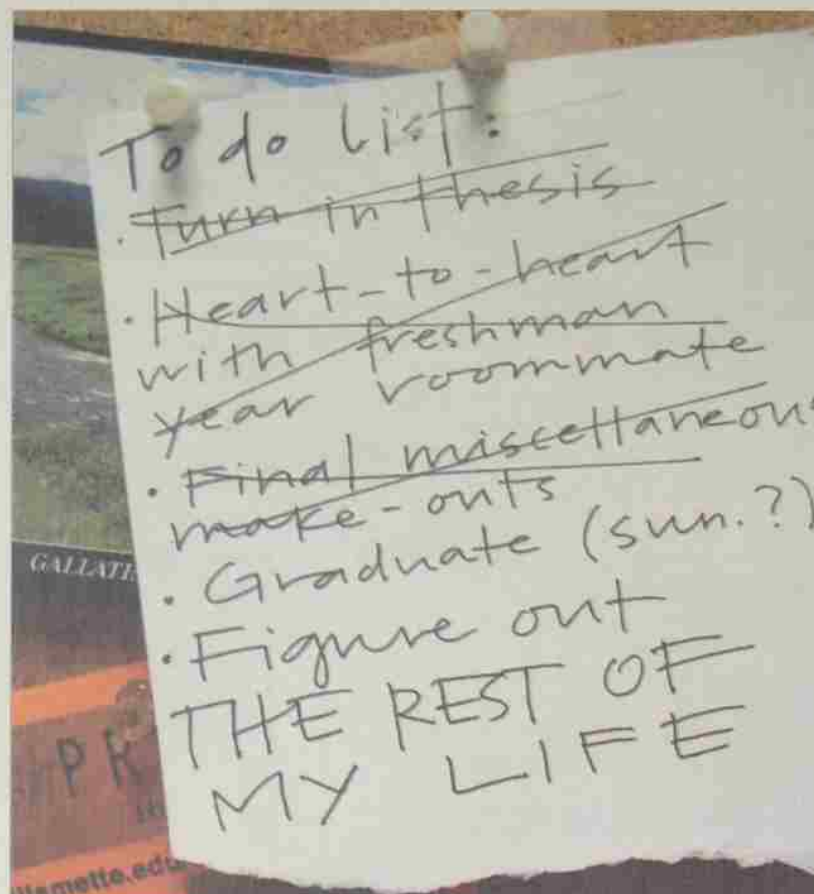 To do list:
· Turn in thesis
· Heart-to-heart
with freshman
year roommate
· Final miscellaneous
make-outs
· Graduate (sun.?)
· Figure out
THE REST OF
MY LIFE
GALLATI
PR